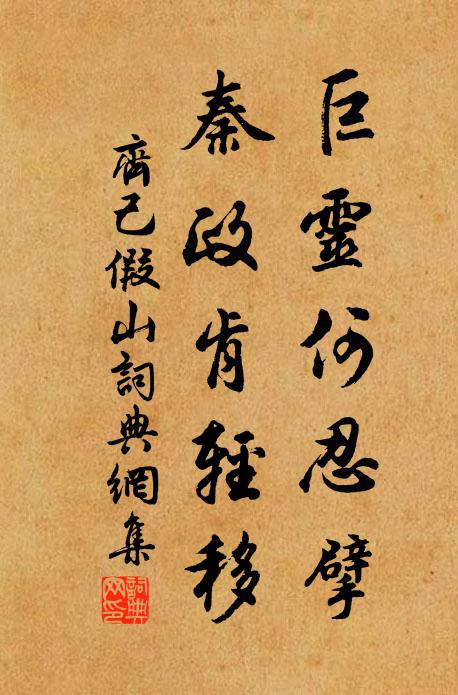 巨靈何忍擘
秦政肯輕移
齊己假山詞典網集
詞典网印